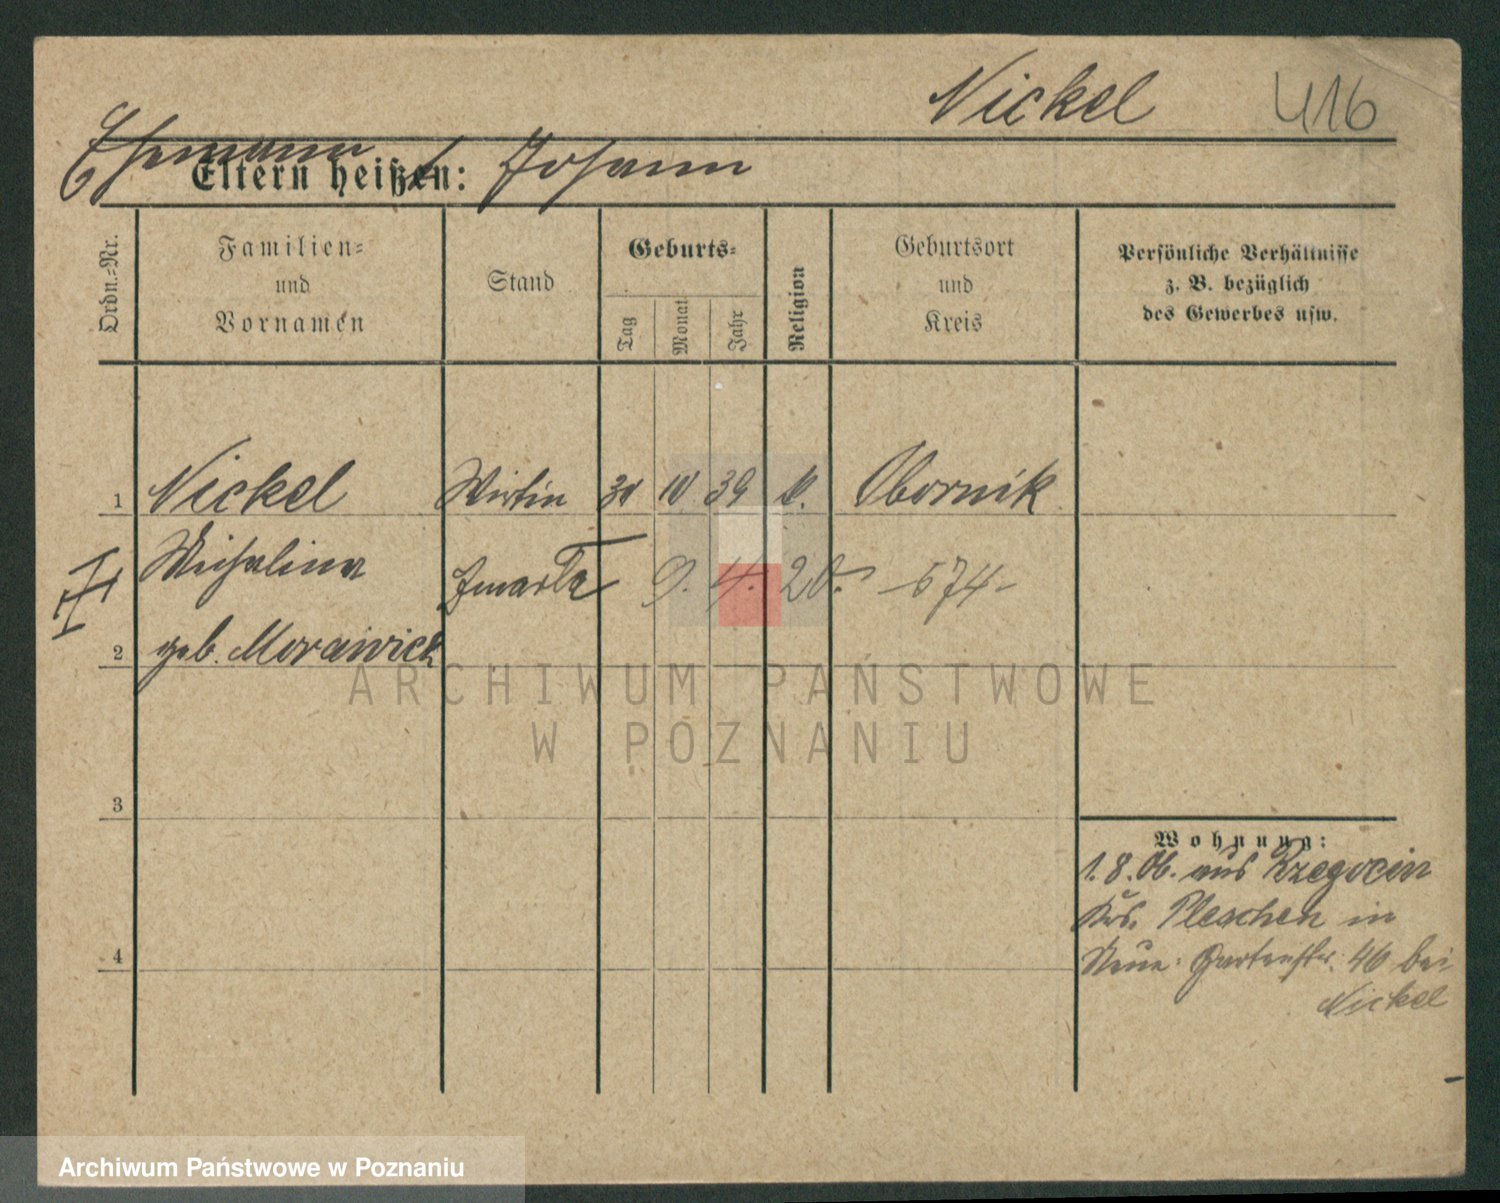 Nickel 416
Ehemann Johann
Eltern heißen:
Ordn.-Nr.
Familien-
und
Vornamen
Stand
Geburts-
Tag
Monat
Jahr
Religion
Geburtsort
und
Kreis
Persönliche Verhältnisse
z. B. bezüglich
des Gewerbes usw.
1 Nickel Wirtin 30 10 39 k. Obornik
Michalina
zmarła 9. 4. 20. -574-
2 geb. Morawick
3
4
Wohnung:
1.8.06. aus Rzegocin
Krs. Pleschen in
Neue Gartenstr. 46 bei
Nickel
ARCHIWUM PAŃSTWOWE
W POZNANIU
Archiwum Państwowe w Poznaniu